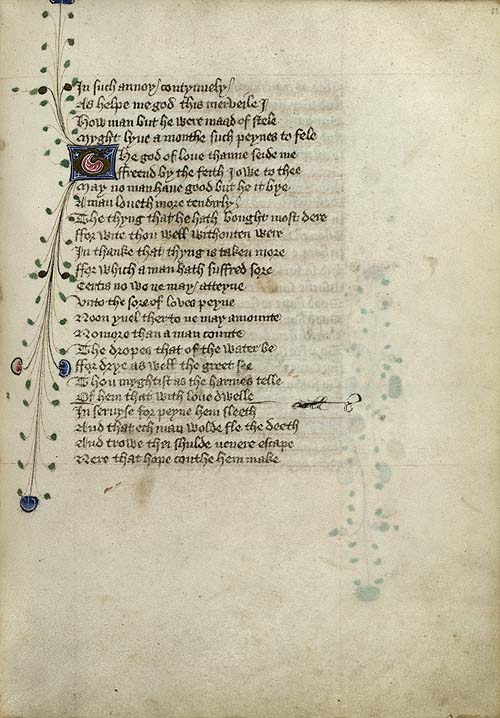 In such annoy contynuely
As helpe me god this merveile I
How man but he were maad of stele
Myght lyue a monthe such peynes to fele
The god of loue thanne seide me
ffreend by the feith I owe to thee
May no man haue good but he it bye
A man loueth more tendirly
The thyng that he hath bought most dere
ffor wite thou well withouten were
In thanke that thyng is taken more
ffor which a man hath suffred sore
Certis no wo ne may atteyne
Vnto the sore of loues peyne
Noon yuel ther to ne may amounte
No more than a man counte
The dropes that of the water be
ffor drye as well the greet see
Thou myghtist as the harmes telle
Of hem that with loue dwelle
In seruyse for peyne hem sleeth
And that ech man wolde fle the deeth
And trowe thei shulde neuere escape
Nere that hope couthe hem make